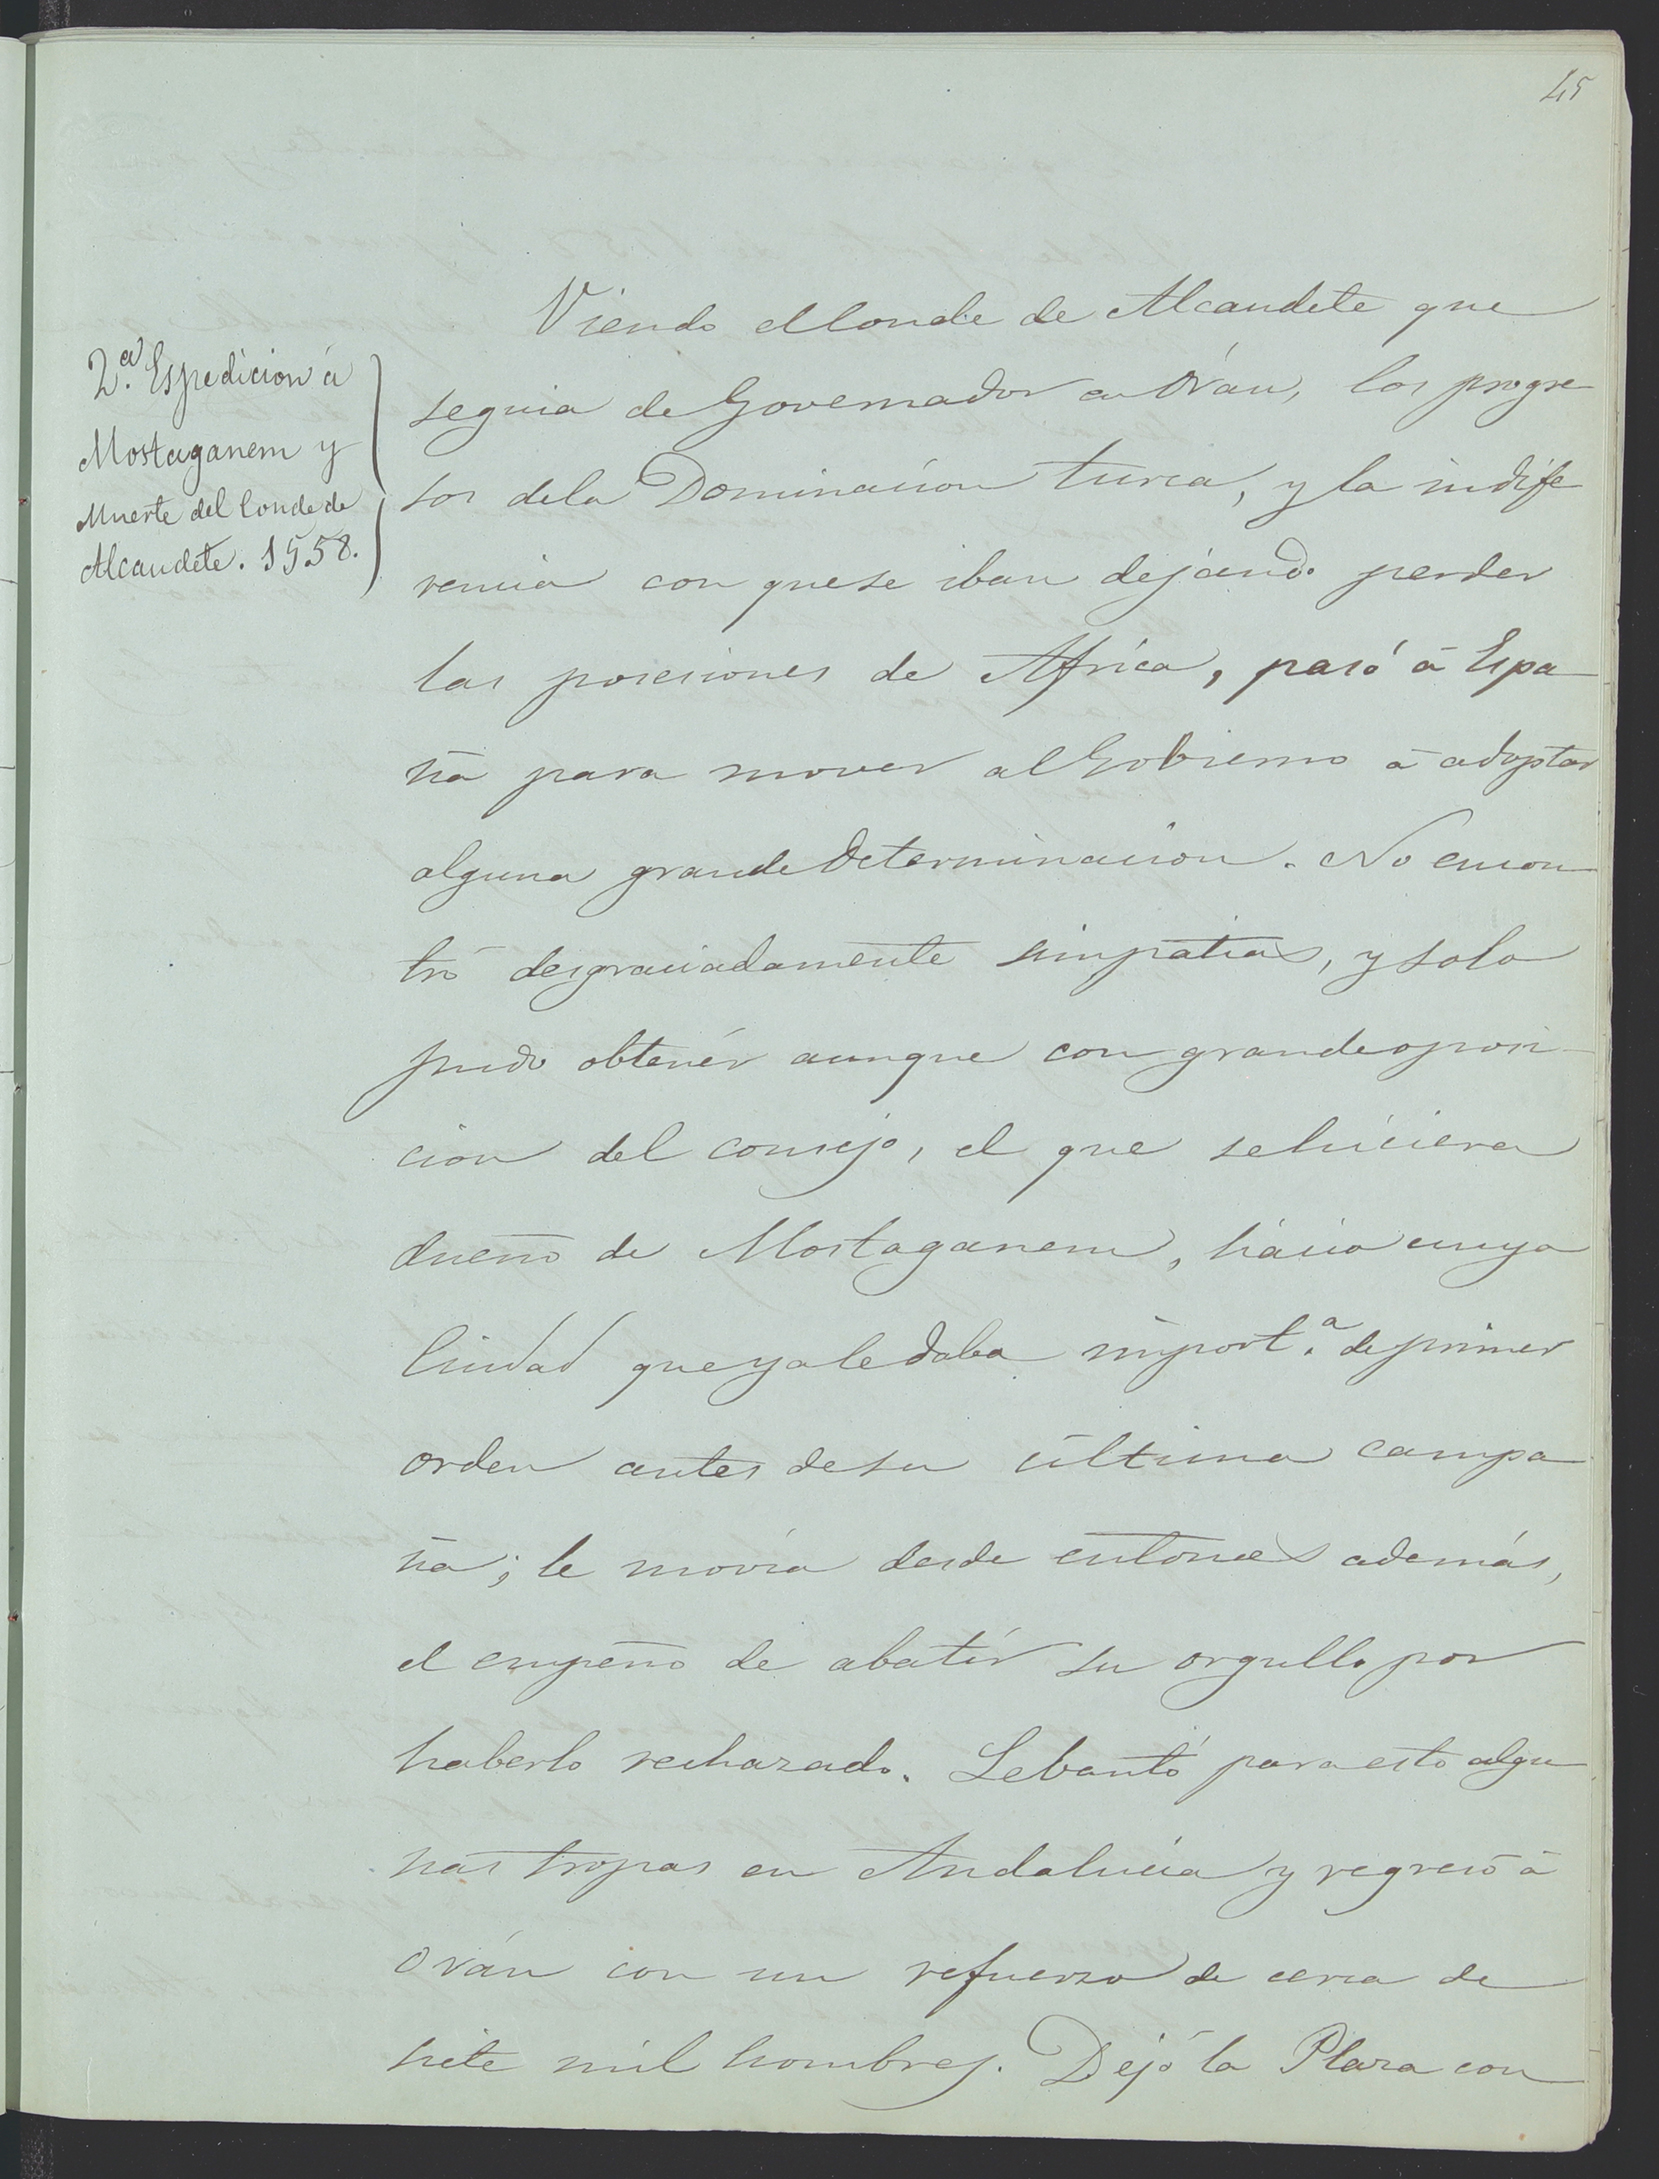 45
2.ª Espedicion á
Mostaganem y
Muerte del Conde de
Alcaudete. 1558.
Viendo el Conde de Alcaudete que
seguia de Governador en Orán, los progre
sos de la Dominacion turca, y la indife
rencia con que se iban dejando perder
las posesiones de Africa, pasó á Espa
ña para mover al Gobierno á adoptar
alguna grande determinacion. No encon
tró desgraciadamente simpatias, y solo
pudo obtenér aunque con grande oposi
cion del consejo, el que se hiciera
dueño de Mostaganem, hácia cuya
Ciudad que ya le daba import.ª de primer
orden antes de su última campa
ña; le movia desde entonces además,
el empeño de abatír su orgullo por
haberlo rechazado. Lebantó para esto algu
nas tropas en Andalucia y regresó á
Orán con un refuerzo de cerca de
siete mil hombres. Dejó la Plaza con